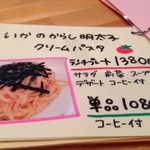 いかのからし明太子
クリームパスタ
ランチプレート 1380
サラダ 前菜 スープ
デザート コーヒー付
単品 108
コーヒー付